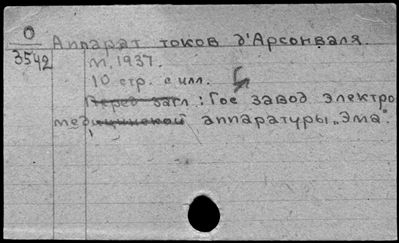 О
3542
Аппарат токов д'Арсонваля.
М. 1937.
10 стр. с илл.
Перед загл.: Гос завод электро
медицинской аппаратуры „Эма".